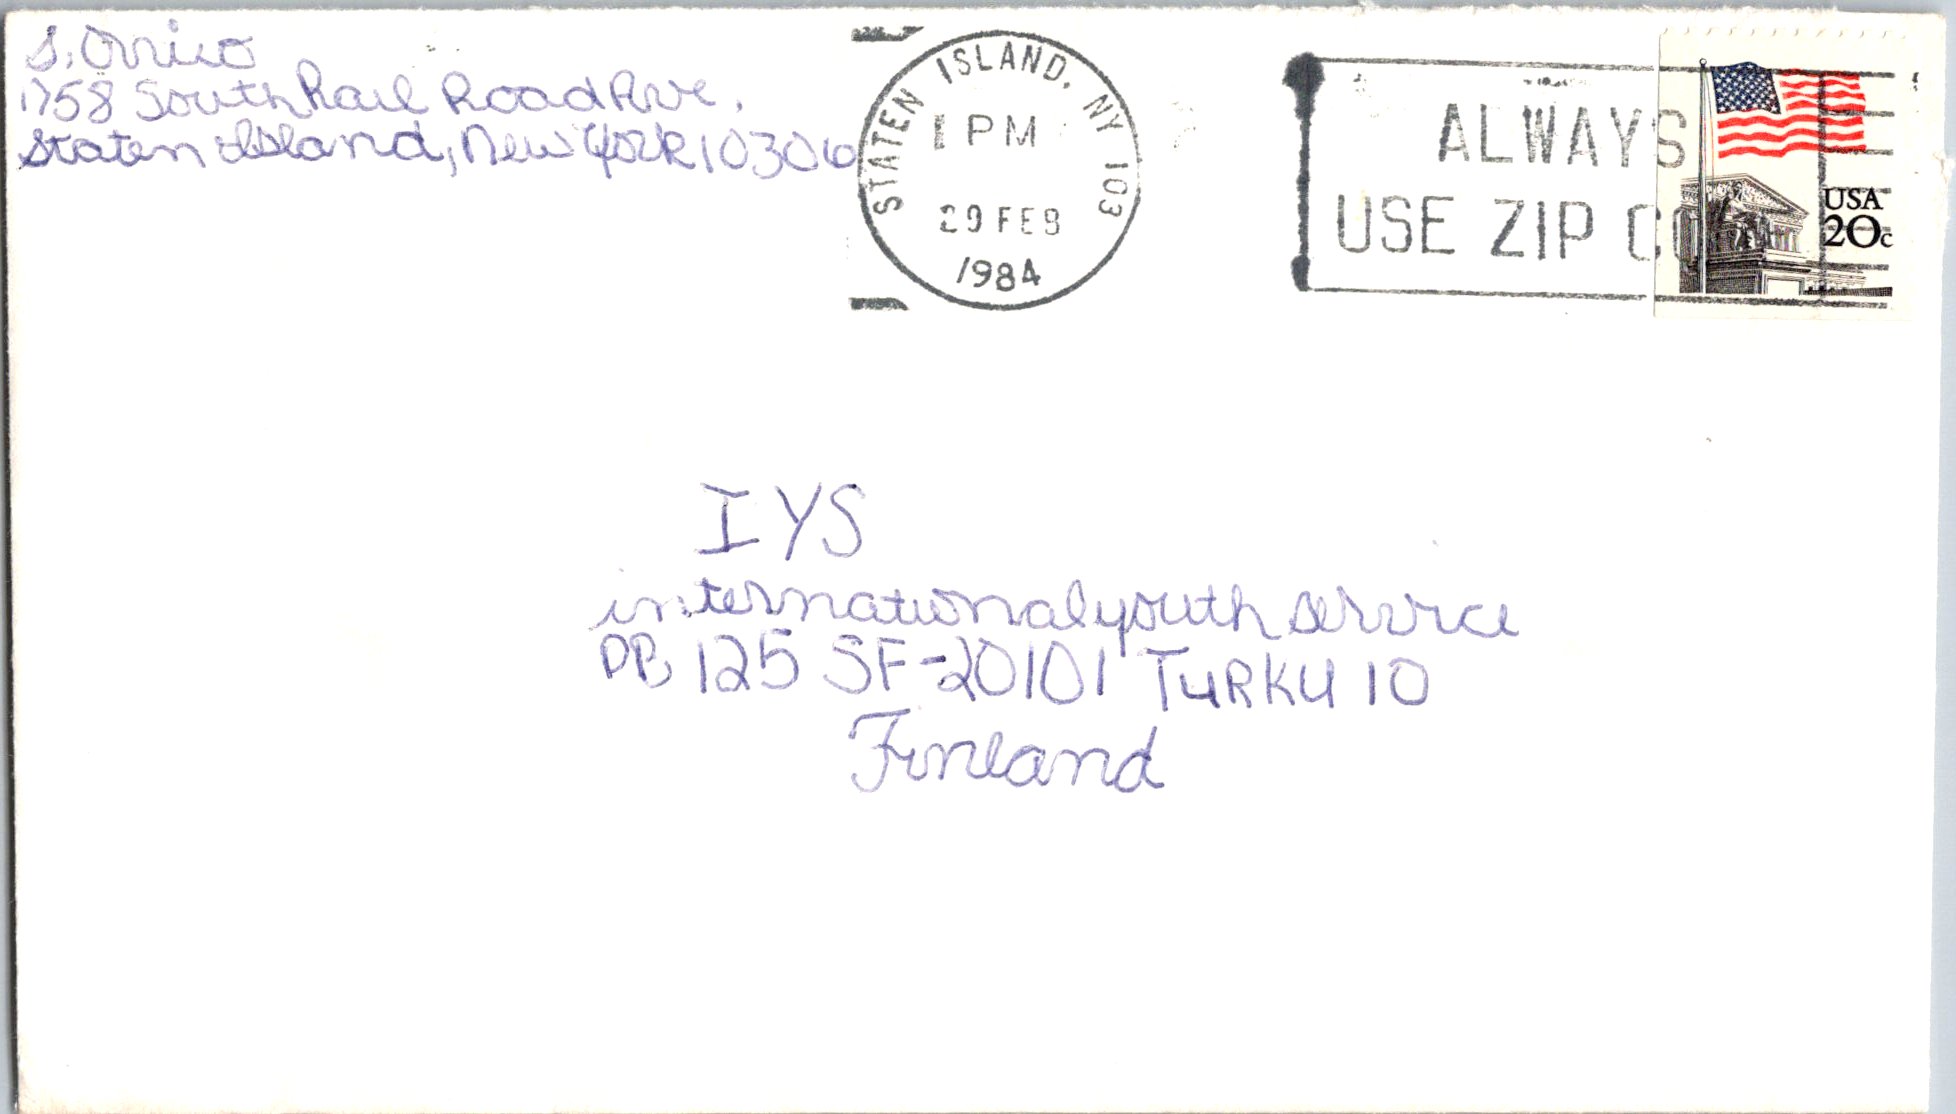 S. Orrico
1758 South Rail Road Ave,
Staten Island, New York 10306
STATEN ISLAND, NY 103
PM
29 FEB
1984
ALWAYS
USE ZIP CO
USA
20c
IYS
international youth service
PB 125 SF-20101 TURKU 10
Finland